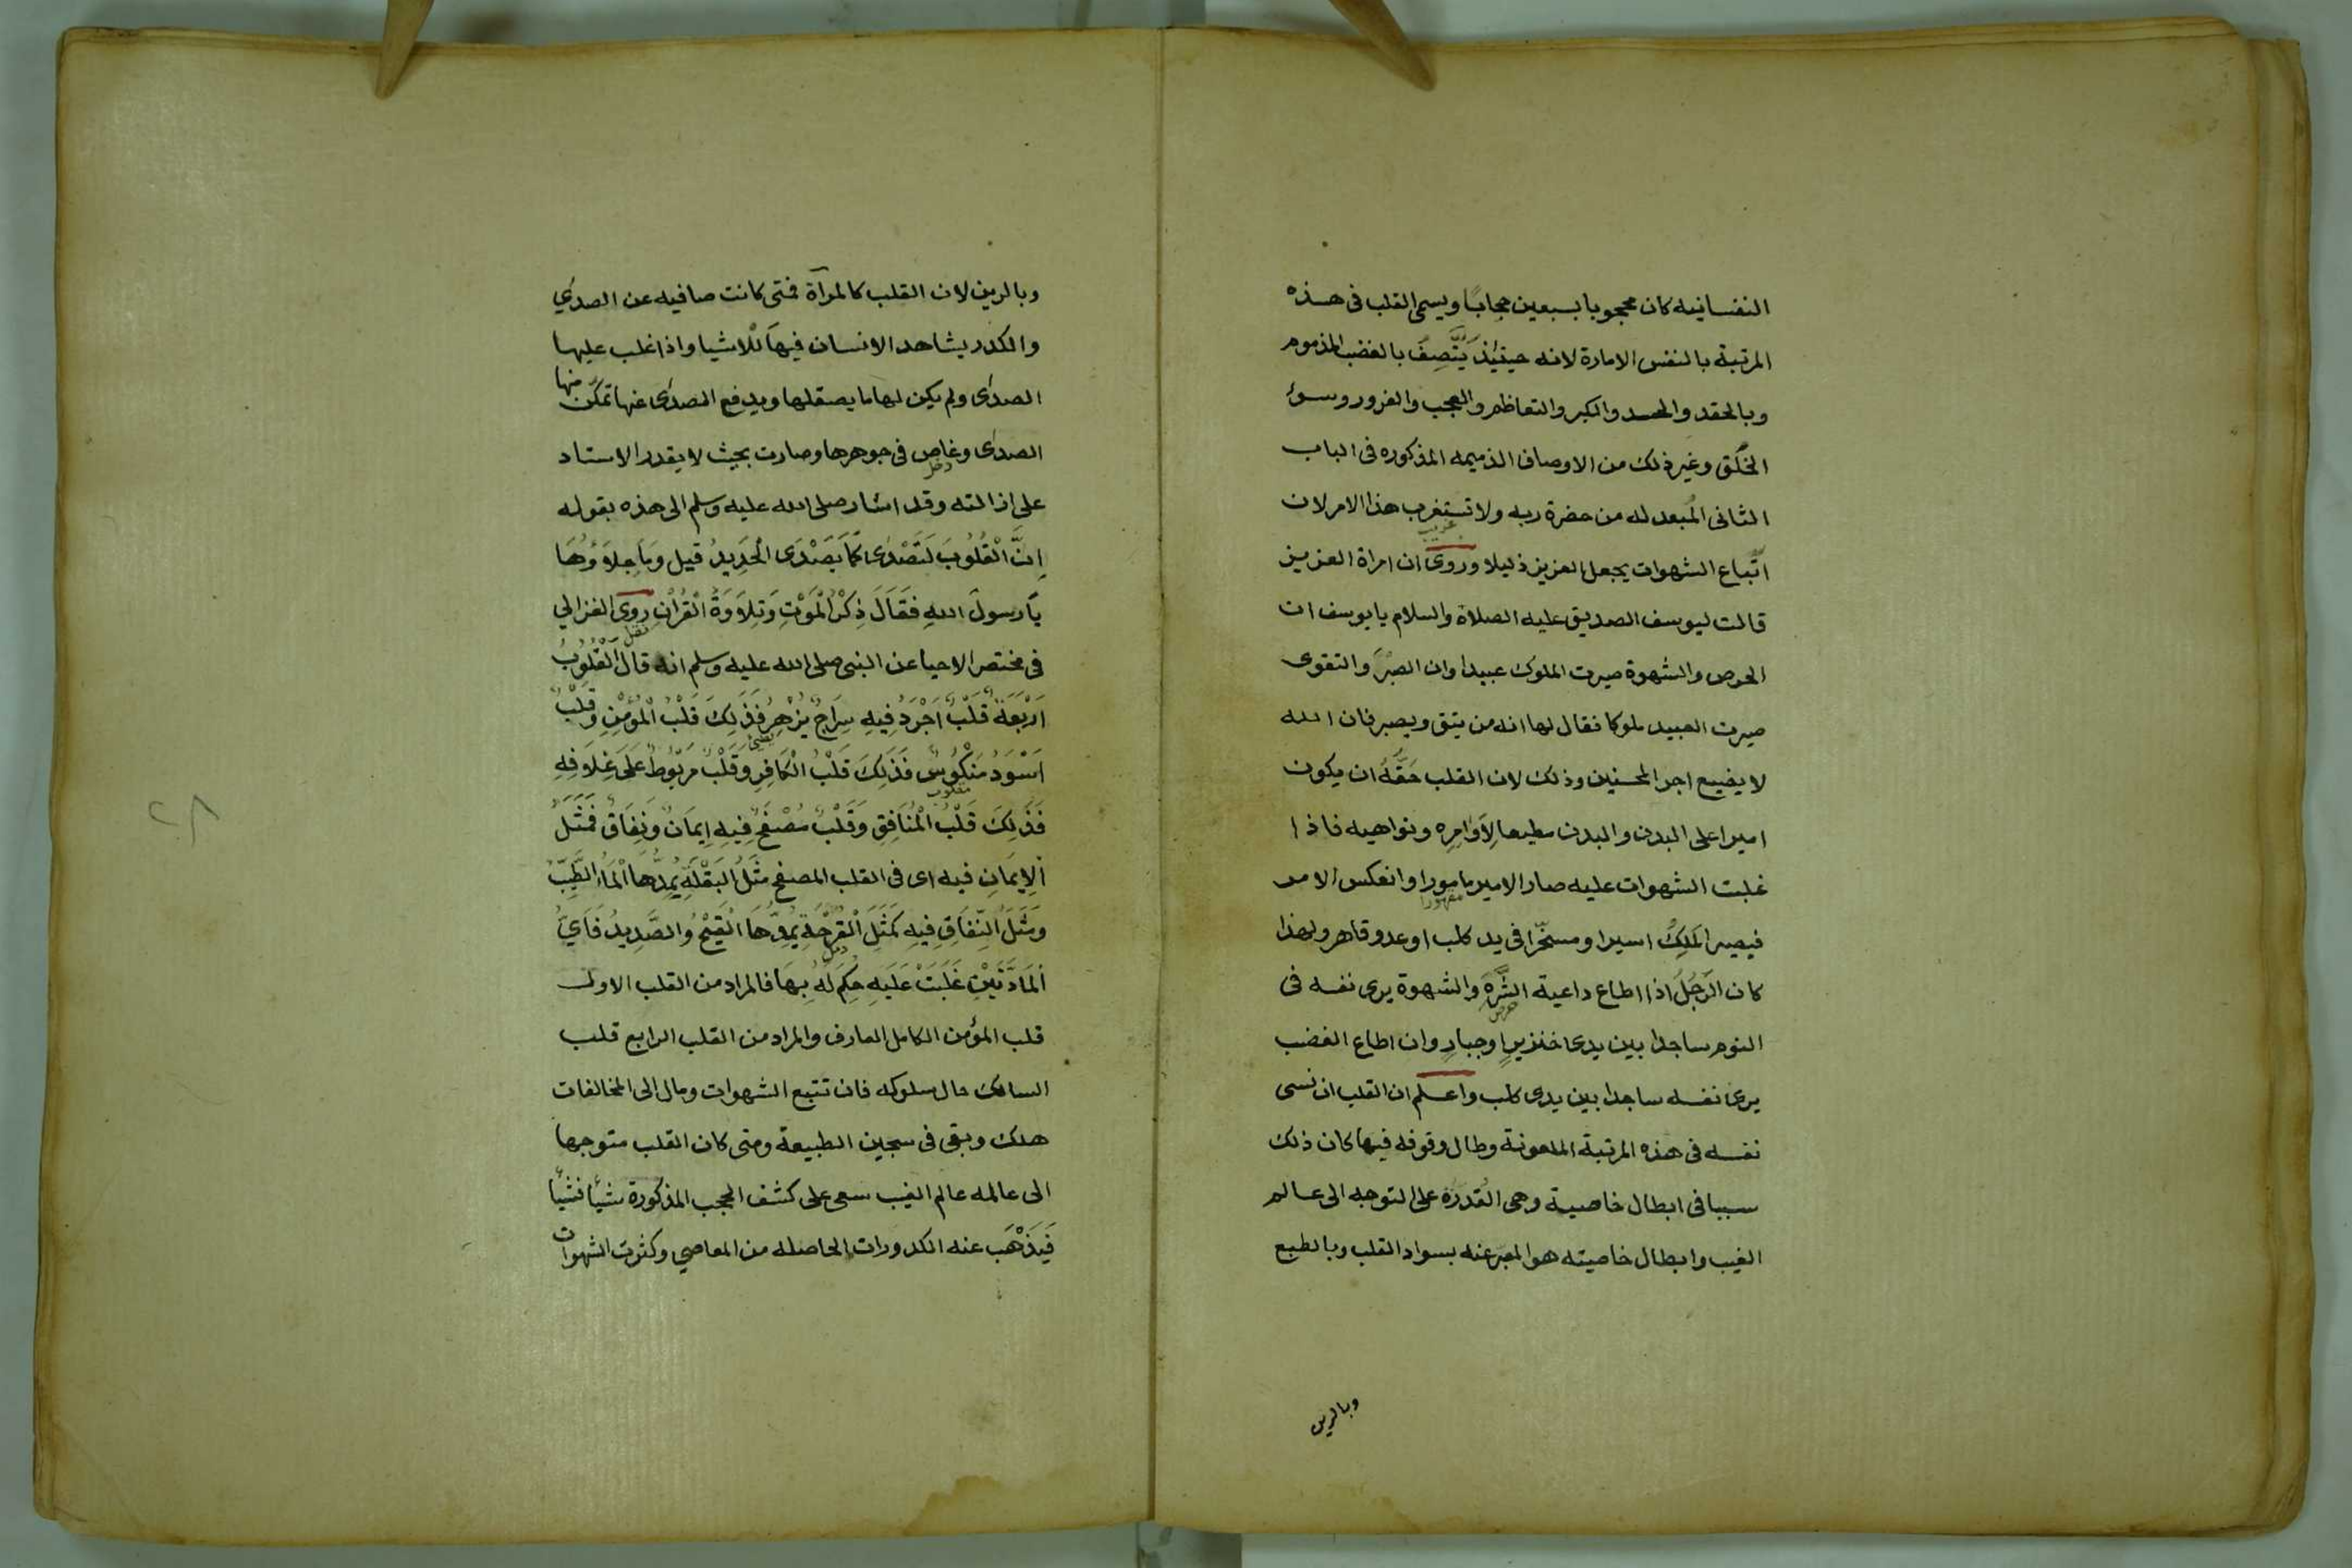 النفسانيه كان محجوبا بسبعين حجابًا ويسمى القلب فى هذه
المرتبة بالنفس الامارة لانه حينئذ يَتَّصِفُ بالغضب المذموم
وبالحقد والحسد والكبر والتعاظم والعجب والغرور وسوء
الخُلُق وغير ذلك من الاوصاف الذميمه المذكوره فى الباب
الثانى المُبعد له من حضرة ربه ولا تستغرب هذا الامر لان
اتّباع الشهوات يجعل العزيز ذليلا وروى ان امراة العزيز
قالت ليوسف الصديق عليه الصلاة والسلام يا يوسف ان
الحرص والشهوة صيرت الملوك عبيدا وان الصبْرَ والتقوى
صيرت العبيد ملوكا فقال لها انه من يتق ويصبر فان الله
لا يضيع اجر المحسنين وذلك لان القلب حَقَّهُ ان يكون
اميرا على البدن والبدن مطيعا لِاَوَامِرِه ونواهيه فاذا
غلبت الشهوات عليه صار الامير مامورا وانعكس الامر
مقهورا
فيصير المَلِكُ اسيرا ومسخّرا فى يد كلب او عدو قاهر ولهذا
كان الرَجُلَ اذا اطاع داعية الشَّرَهِ والشهوة يرى نفسه فى
حرص
النوم ساجدا بين يدى خنزيرٍ او جبارٍ وان اطاع الغضب
يرى نفسه ساجدا بين يدى كلب واعلم ان القلب ان نسى
نفسه فى هذه المرتبة الملعونة وطال وقوفه فيها كان ذلك
سببا فى ابطال خاصية وهى القُدرَة على التوجه الى عالم
الغيب وابطال خاصيته هو المعبر عنه بسواد القلب وبالطبع
وبالرين
وبالرين لان القلب كالمرآة فمتى كانت صافيه عن الصدىٍ
والكدر يشاهد الانسان فيهَا للْاشيا واذا غلب عليها
الصدى ولم يكن لها ما يصقلها ويدفع الصدى عنها تمكّن منها
الصدى وغاص فى جوهرها وصارت بحيث لا يقدر الاستاد
دخل
على ازالته وقد اشار صلى الله عليه وسلم الى هذه بقوله
اِنَّ الْقُلُوبَ لَتَصْدَى كَمَا يَصْدَى الْحَدِيدُ قيل وَمَا جِلاَؤُهَا
يَا رسولَ اللهِ فَقَالَ ذِكْرُ الْمَوْتِ وَتِلاَوَةُ الْقُرْآنِ روى الغزالي
نقل
فى مختصر الاحيا عن النبى صلى الله عليه وسلم انه قال القُلُوبُ
اَرْبَعَةٌ قَلْبٌ اَجْرَدُ فِيهِ سِرَاجٌ يَزْهِرُ فَذَلِكَ قَلْبُ الْمُؤْمِنِ وَقَلْبٌ
يضئ
اَسْوَدُ مَنْكُوسٌ فَذَلِكَ قَلْبُ الْكَافِرِ وَقَلْبٌ مَرْبُوطٌ عَلَى غِلَافِهِ
مقلوب
فَذَلِكَ قَلْبُ الْمُنَافِقِ وَقَلْبٌ مُصْفَحٌ فِيهِ اِيمَانٌ وَنِفَاقٌ فَمَثَلُ
الْاِيمَانِ فيه اى فى القلب المصفح مَثَلُ الْبَقْلَةِ يَمُدُّهَا الْمَاءُ الطَّيِّبُ
وَمَثَلُ النِّفَاقِ فِيهِ كَمَثَلِ الْقَرْحَةِ يَمُدُّهَا الْقَيْحُ وَالصَّدِيدُ فَاَيُّ
دمل
الْمَادَّتَيْنِ غَلَبَتْ عَلَيهِ حكِمَ لَهُ بِهَا فالمراد من القلب الاول
قلب المؤمن الكامل العارف والمراد من القلب الرابع قلب
السالك حال سلوكه فان تتبع الشهوات ومال الى المخالفات
هلك وبقى فى سجين الطبيعة ومتى كان القلب متوجها
الى عالمه عالم الغيب سعى على كشف الحجب المذكورة شيًا فشيًا
فَيَذْهَب عنه الكدورات الحاصله من المعاصي وكثرت الشهوات
٢٨